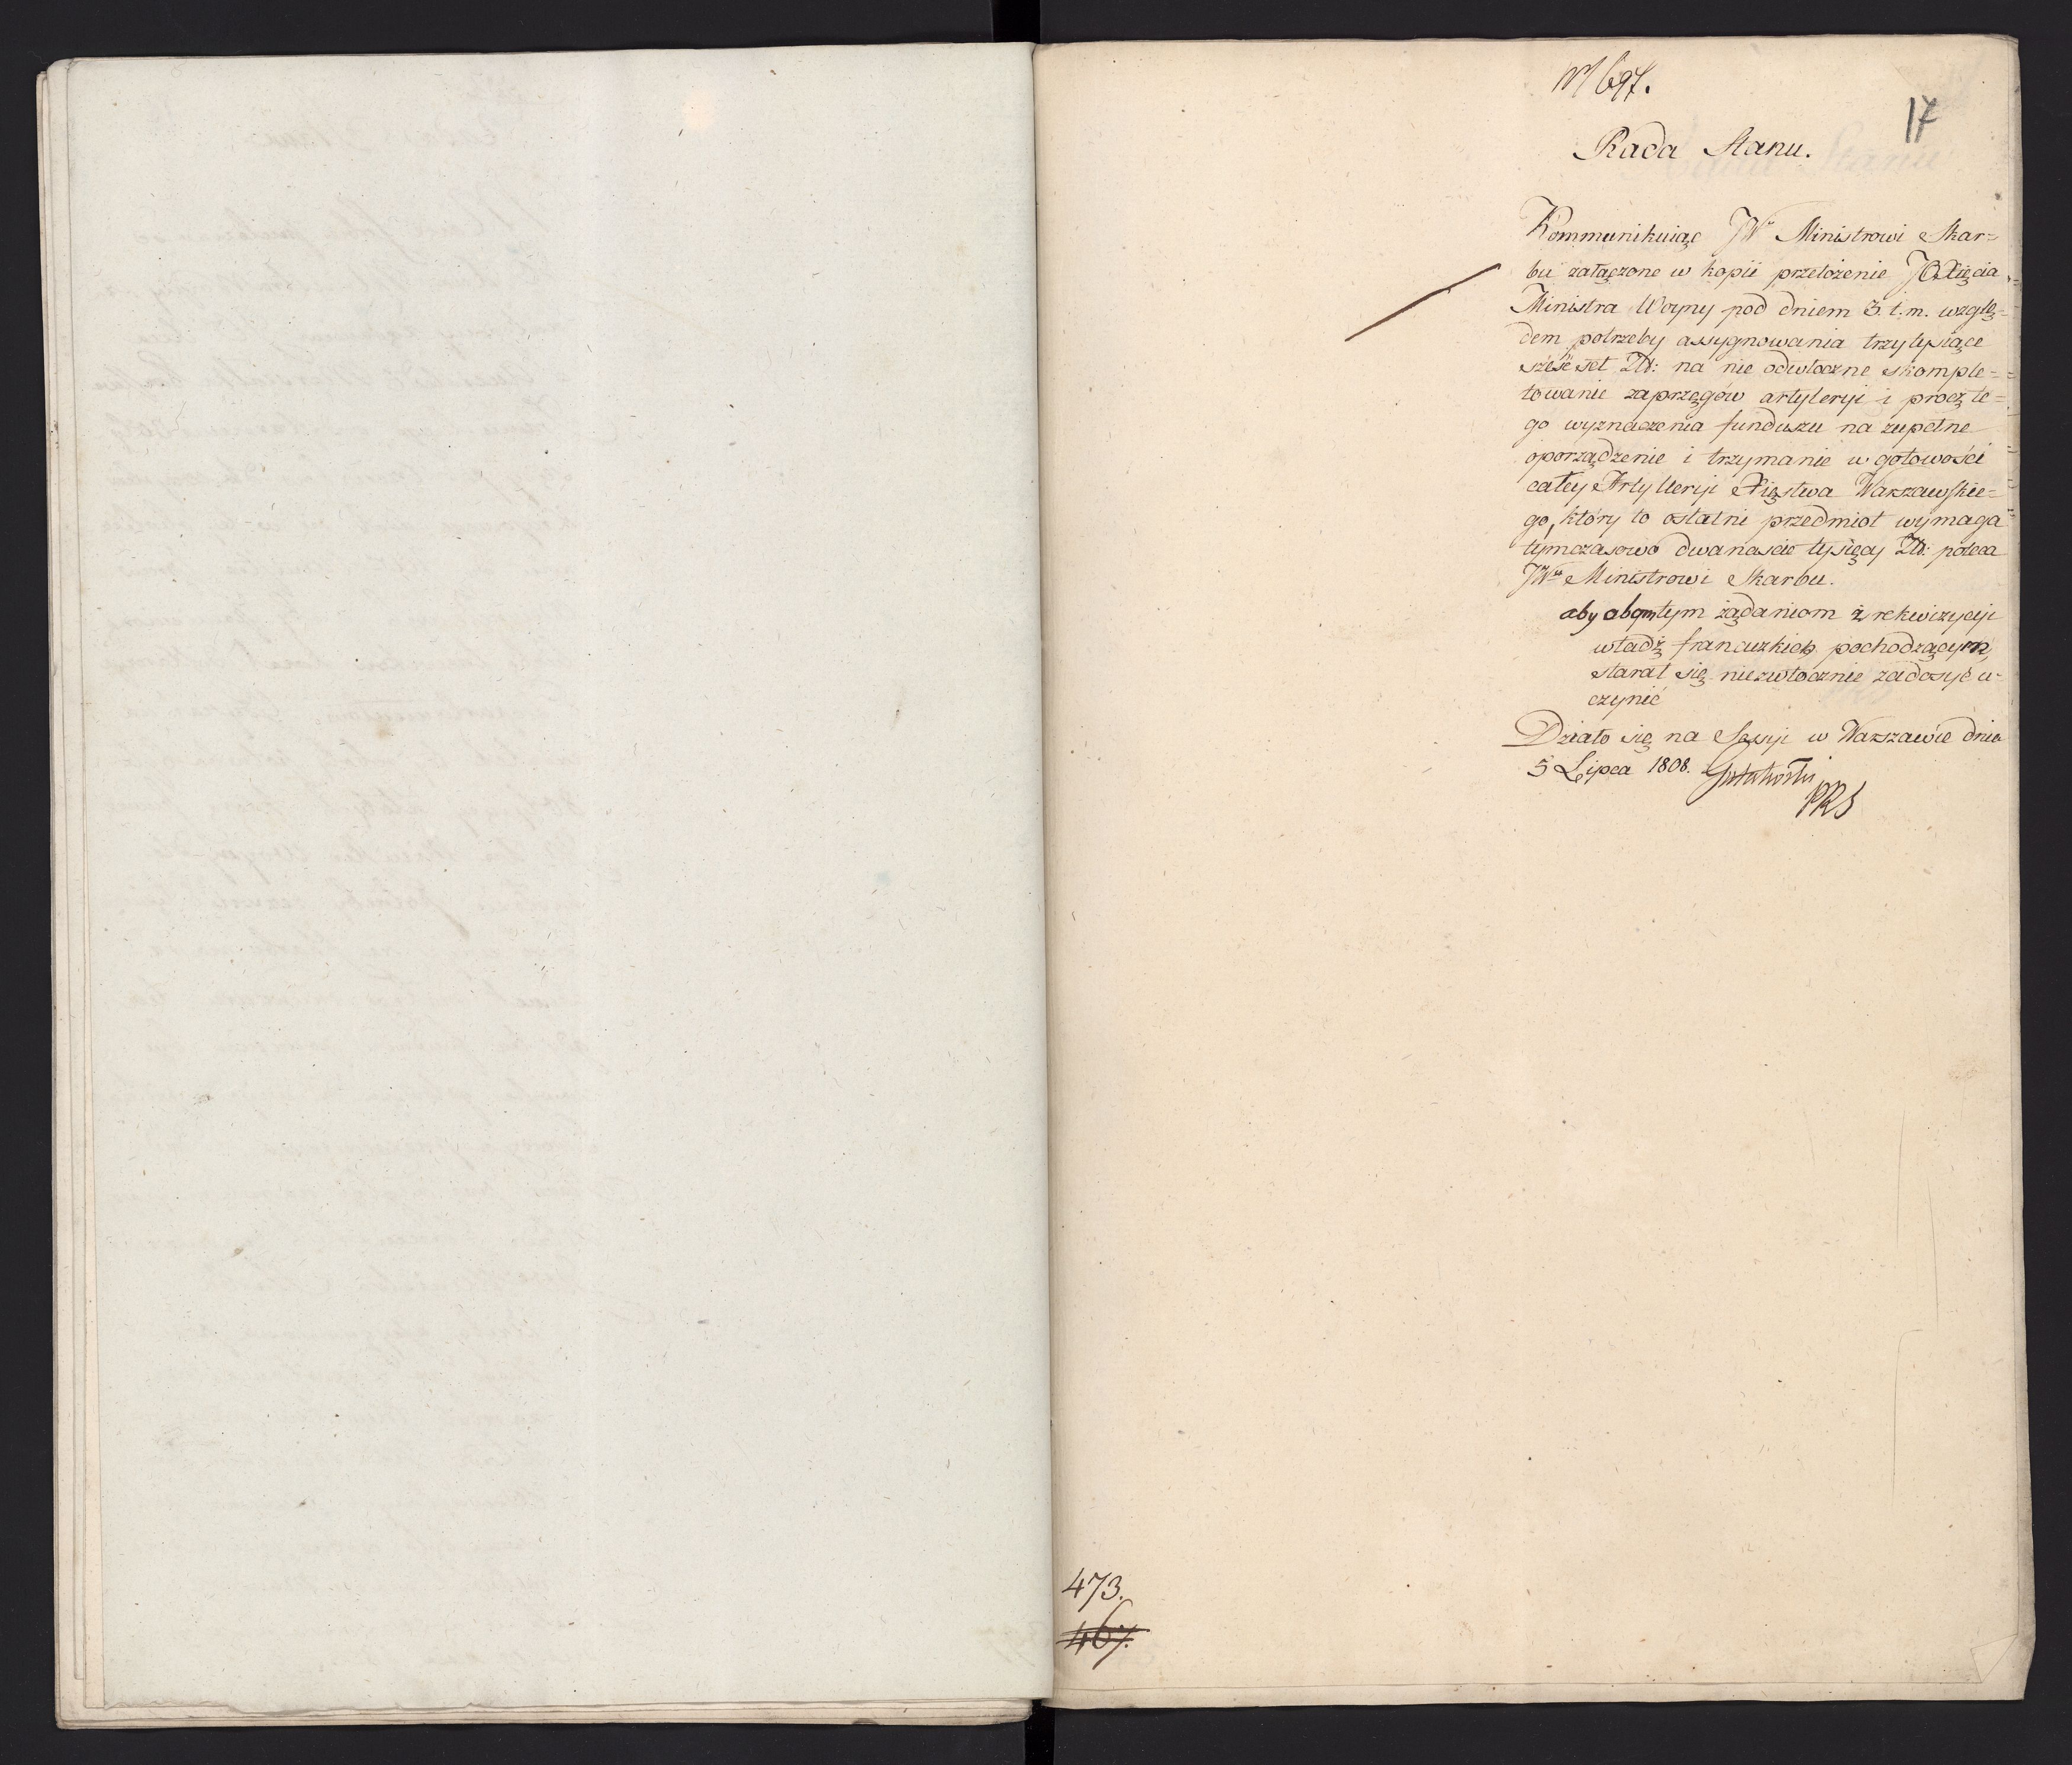 N 697.
17
Rada Stanu.
Kommunikuiąc JW Ministrowi Skar=
bu załączone w kopii przełożenie JOXięcia
Ministra Woyny pod dniem 3. t. m. wzglę=
dem potrzeby assygnowania trzy tysiące
sześćset Złł: na nie odwłoczne skomple=
towanie zaprzęgów artylleryi i procz te=
go wyznaczenia funduszu na zupełne
oporządzenie i trzymanie w gotowości
całey Artylleryi Xięstwa Warszawskie=
go, który to ostatni przedmiot wymaga
tymczasowo dwanaście tysięcy Złł: poleca
JWu Ministrowi Skarbu.
aby obom tym żądaniom z rekwizycyi
władz francuzkich pochodzącym,
starał się niezwłocznie zadosyć u=
czynić
Działo się na Sessyi w Warszawie dnia
5 Lipca 1808.
PRS
473.
467.